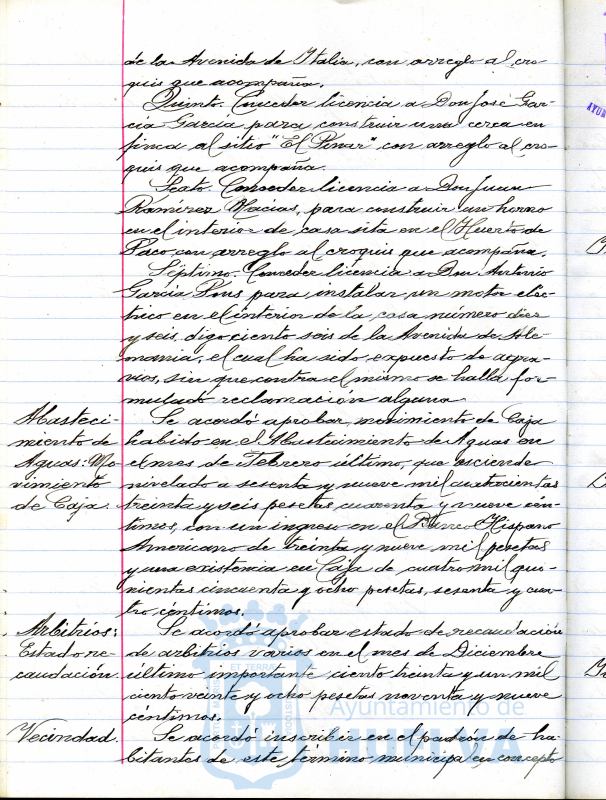 de la Avenida de Italia, con arreglo al cro-
quis que acompaña.
Quinto. Conceder licencia a Don José Gar-
cía García para construir una cerca en
finca al sitio "El Pinar" con arreglo al cro-
quis que acompaña.
Sexto. Conceder licencia a Don Juan
Ramírez Macías, para construir un horno
en el interior de casa sita en el Huerto de
Paco con arreglo al croquis que acompaña.
Séptimo. Conceder licencia a Don Antonio
García Pons para instalar un motor eléc-
trico en el interior de la casa número diez
y seis, digo ciento seis de la Avenida de Ale-
mania, el cual ha sido expuesto de agra-
vios, sin que contra el mismo se halla for-
mulado reclamación alguna.
Abasteci-
miento de
Aguas: Mo-
vimiento
de Caja.
Se acordó aprobar movimiento de Caja
habido en el Abastecimiento de Aguas en
el mes de Febrero último, que asciende
nivelado a sesenta y nueve mil cuatrocientas
treinta y seis pesetas cuarenta y nueve cén-
timos, con un ingreso en el Banco Hispano
Americano de treinta y nueve mil pesetas
y una existencia en Caja de cuatro mil qui-
nientas cincuenta y ocho pesetas, sesenta y cua-
tro céntimos.
Arbitrios:
Estado re-
caudación.
Se acordó aprobar estado de recaudación
de arbitrios varios en el mes de Diciembre
último importante ciento treinta y un mil
ciento veinte y ocho pesetas noventa y nueve
céntimos.
Vecindad.
Se acordó inscribir en el padrón de ha-
bitantes de este término municipa en concepto
Ayuntamiento de
HUELVA